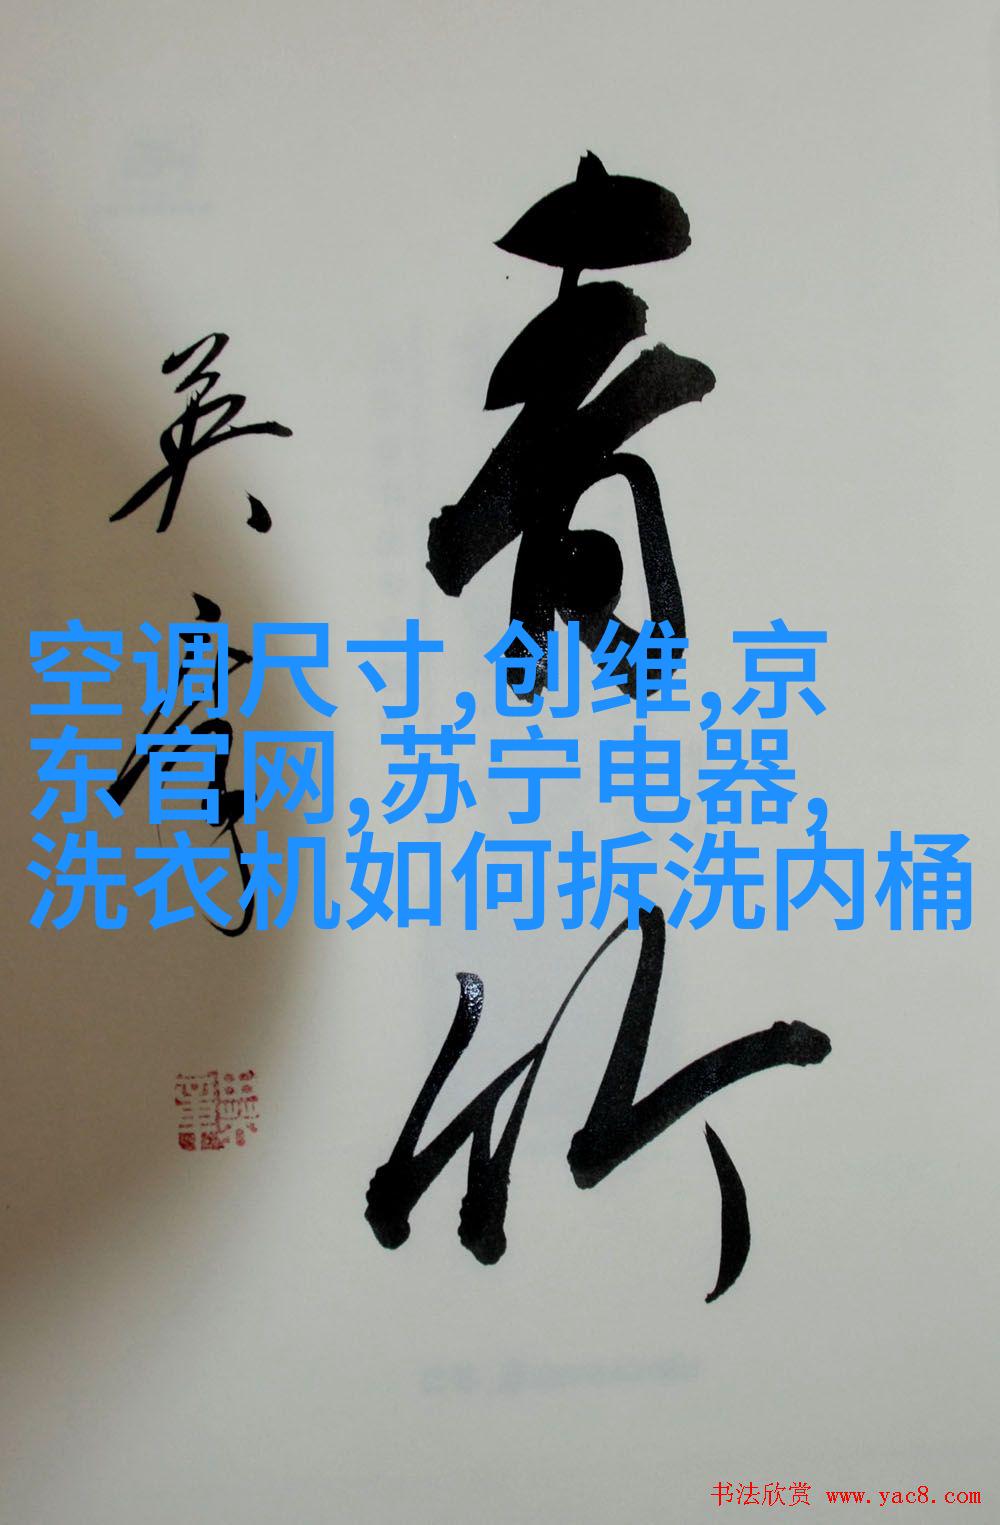 青竹
英
空调尺寸,创维,京
东官网,苏宁电器,
洗衣机如何拆洗内桶
书法欣赏 www.yac8.com